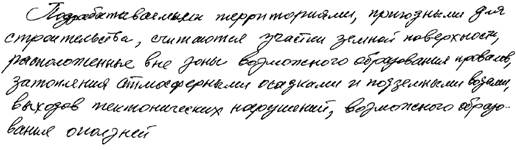 Подрабатываемыми территориями, пригодными для
строительства, считаются участки земной поверхности,
расположенные вне зоны возможного образования провалов,
затопления атмосферными осадками и подземными водами,
выходов тектонических нарушений, возможного образо-
вания оползней